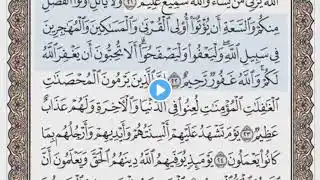 ٱللَّهَ يُزَكِّى مَن يَشَآءُ وَٱللَّهُ سَمِيعٌ عَلِيمٌ ٢١ وَلَا يَأْتَلِ أُو۟لُوا۟ ٱلْفَضْلِ
مِنكُمْ وَٱلسَّعَةِ أَن يُؤْتُوٓا۟ أُو۟لِى ٱلْقُرْبَىٰ وَٱلْمَسَٰكِينَ وَٱلْمُهَٰجِرِينَ
فِى سَبِيلِ ٱللَّهِ وَلْيَعْفُوا۟ وَلْيَصْفَحُوٓا۟ أَلَا تُحِبُّونَ أَن يَغْفِرَ ٱللَّهُ
لَكُمْ وَٱللَّهُ غَفُورٌ رَّحِيمٌ ٢٢ إِنَّ ٱلَّذِينَ يَرْمُونَ ٱلْمُحْصَنَٰتِ
ٱلْغَٰفِلَٰتِ ٱلْمُؤْمِنَٰتِ لُعِنُوا۟ فِى ٱلدُّنْيَا وَٱلْءَاخِرَةِ وَلَهُمْ عَذَابٌ
عَظِيمٌ ٢٣ يَوْمَ تَشْهَدُ عَلَيْهِمْ أَلْسِنَتُهُمْ وَأَيْدِيهِمْ وَأَرْجُلُهُم بِمَا
كَانُوا۟ يَعْمَلُونَ ٢٤ يَوْمَئِذٍ يُوَفِّيهِمُ ٱللَّهُ دِينَهُمُ ٱلْحَقَّ وَيَعْلَمُونَ أَنَّ